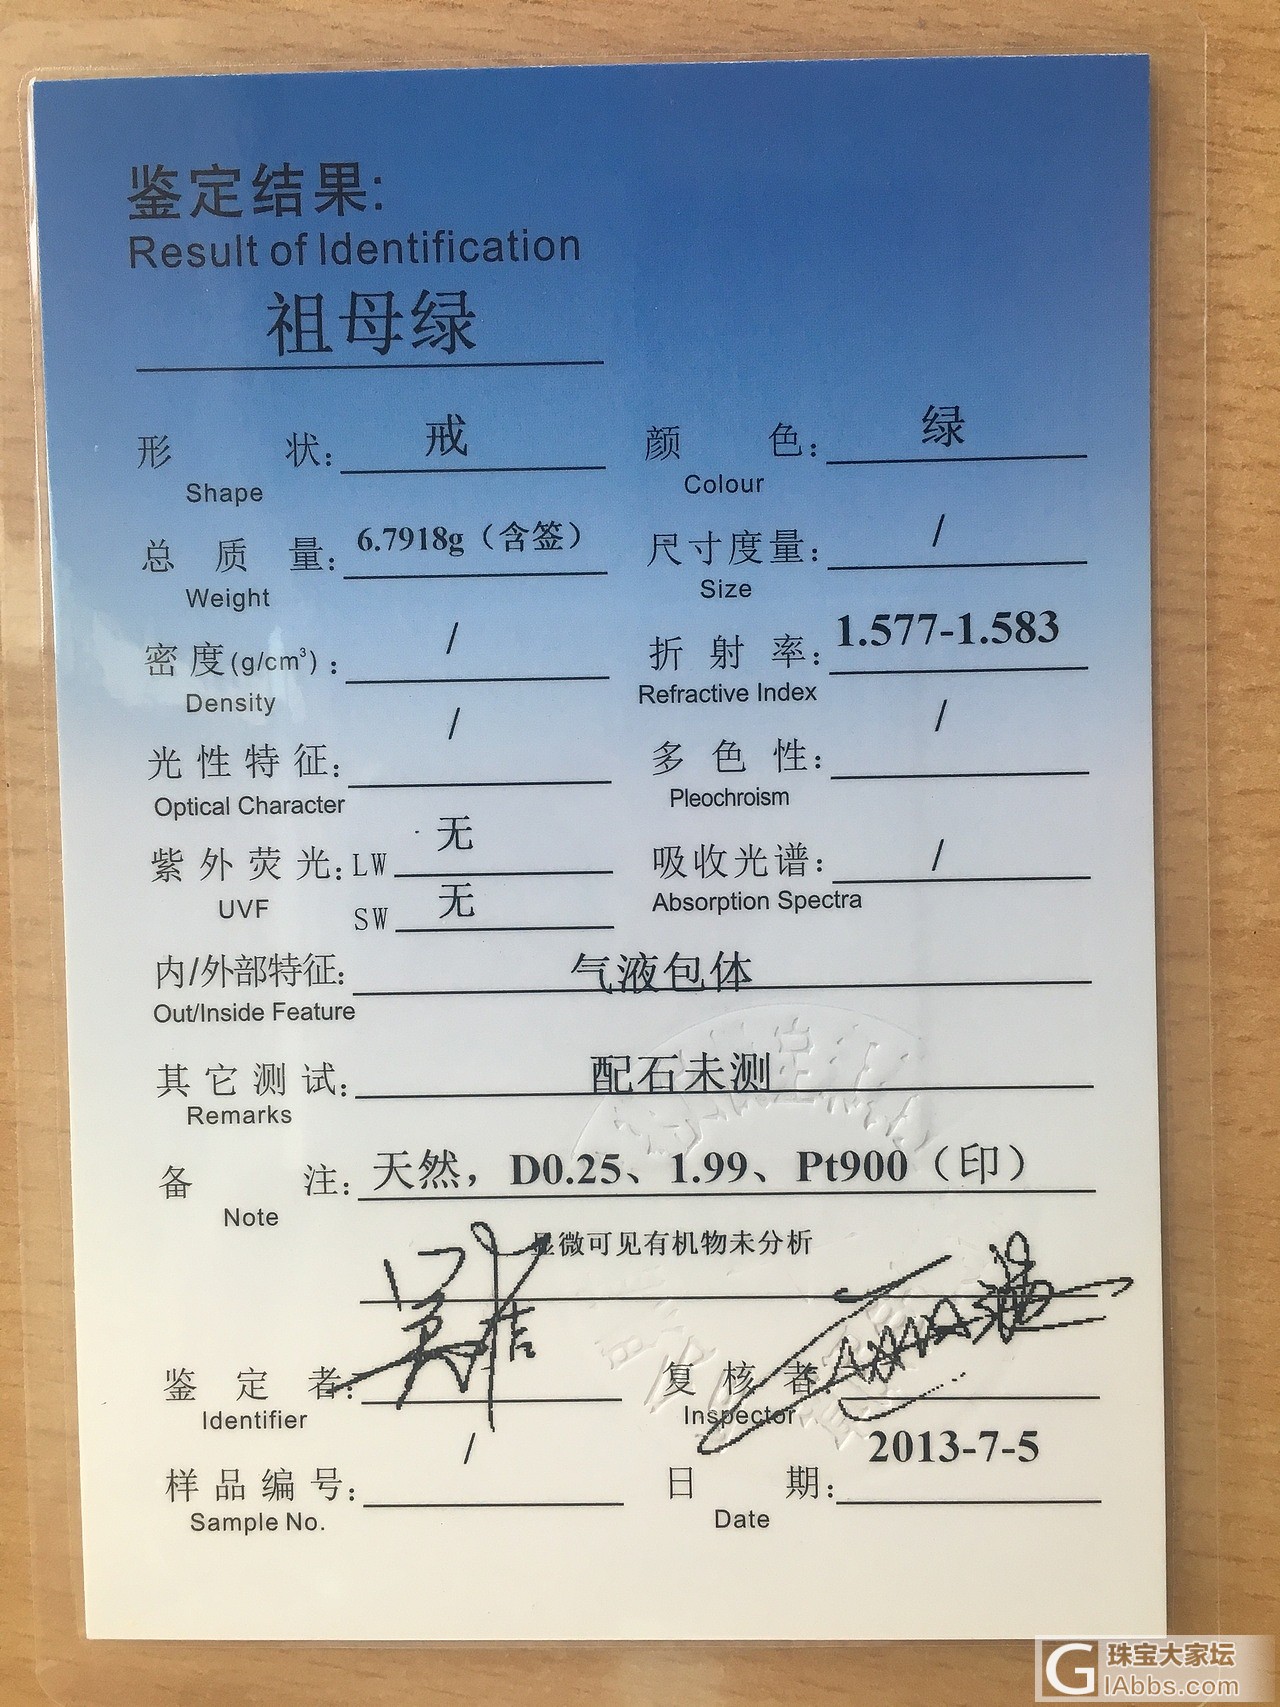 鉴定结果:
Result of Identification
祖母绿
形 状: 戒 颜 色: 绿
Shape Colour
总 质 量: 6.7918g（含签） 尺寸度量: /
Weight Size
密度(g/cm³): / 折 射 率: 1.577-1.583
Density Refractive Index
光性特征: / 多 色 性: /
Optical Character Pleochroism
紫外荧光: LW 无 吸收光谱: /
UVF SW 无 Absorption Spectra
内/外部特征: 气液包体
Out/Inside Feature
其它测试: 配石未测
Remarks
备 注: 天然，D0.25、1.99、Pt900（印）
Note
显微可见有机物未分析
鉴 定 者: 复 核 者:
Identifier Inspector
样品编号: / 日 期: 2013-7-5
Sample No. Date
G 珠宝大家坛
GIAbbs.com